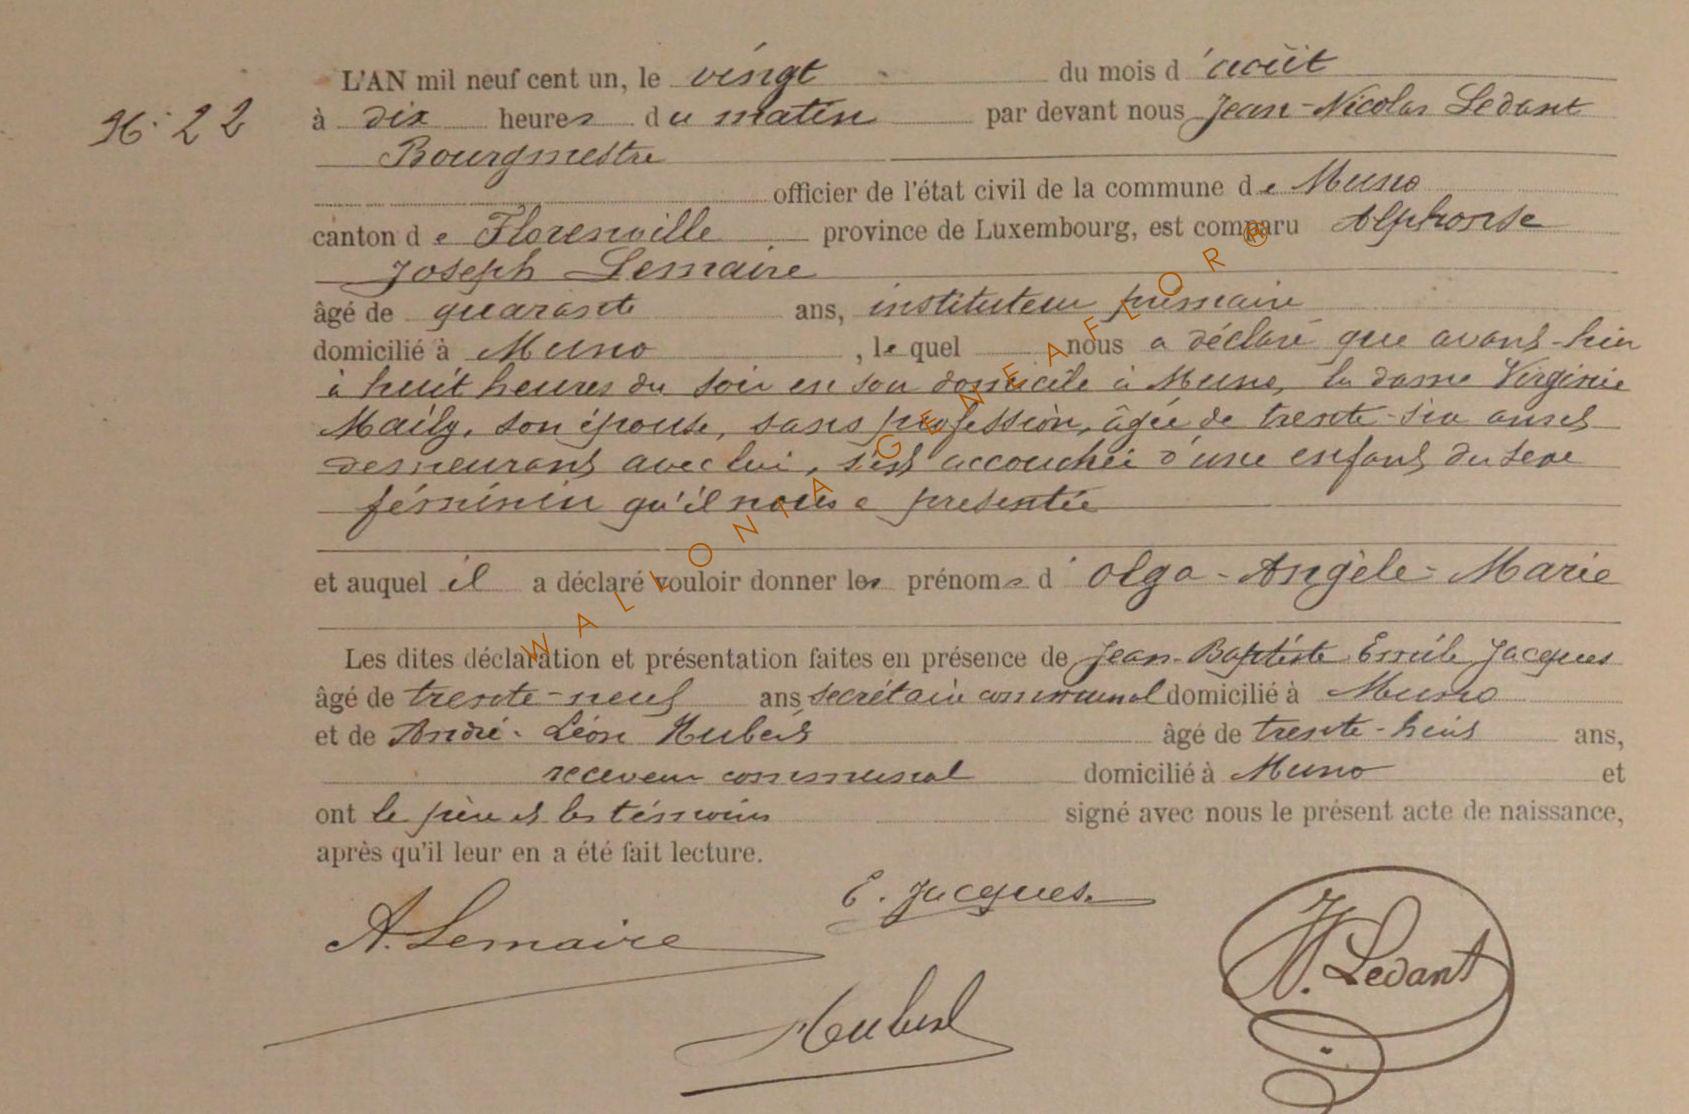 L'AN mil neuf cent un, le vingt du mois d'août
N° 22
à dix heures du matin par devant nous Jean-Nicolas Ledant
Bourgmestre
officier de l'état civil de la commune de Muno
canton de Florenville province de Luxembourg, est comparu Alphonse
Joseph Lemaire
âgé de quarante ans, instituteur primaire
domicilié à Muno, lequel nous a déclaré que avant-hier
à huit heures du soir en son domicile à Muno, la dame Virginie
Maily, son épouse, sans profession, âgée de trente-six ans et
demeurant avec lui, s'est accouchée d'une enfant du sexe
féminin qu'il nous a présentée
et auquel il a déclaré vouloir donner les prénoms d'Olga-Angèle-Marie
Les dites déclaration et présentation faites en présence de Jean-Baptiste Emile Jacques
âgé de trente-neuf ans secrétaire communal domicilié à Muno
et de André-Léon Hubert âgé de trente-huit ans,
receveur communal domicilié à Muno et
ont le père et les témoins signé avec nous le présent acte de naissance,
après qu'il leur en a été fait lecture.
E. Jacques
A. Lemaire
N. Ledant
Hubert
WALLONIA GENEAFLOR®